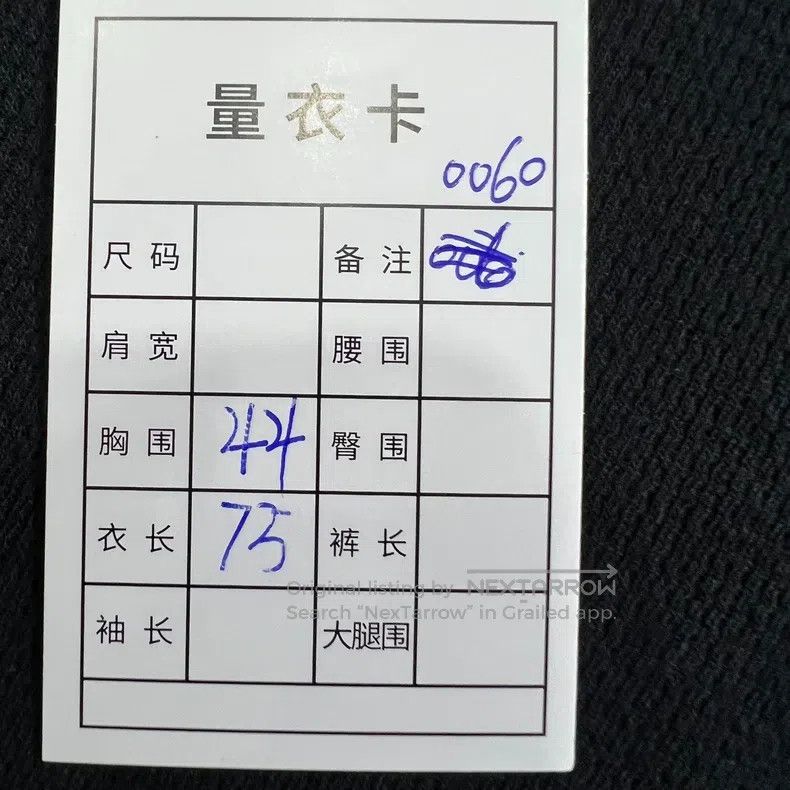 量衣卡
0060
尺码 备注
肩宽 腰围
胸围 44 臀围
衣长 75 裤长
Original listing by NEXTARROW
Search “NexTarrow” in Grailed app.
袖长 大腿围